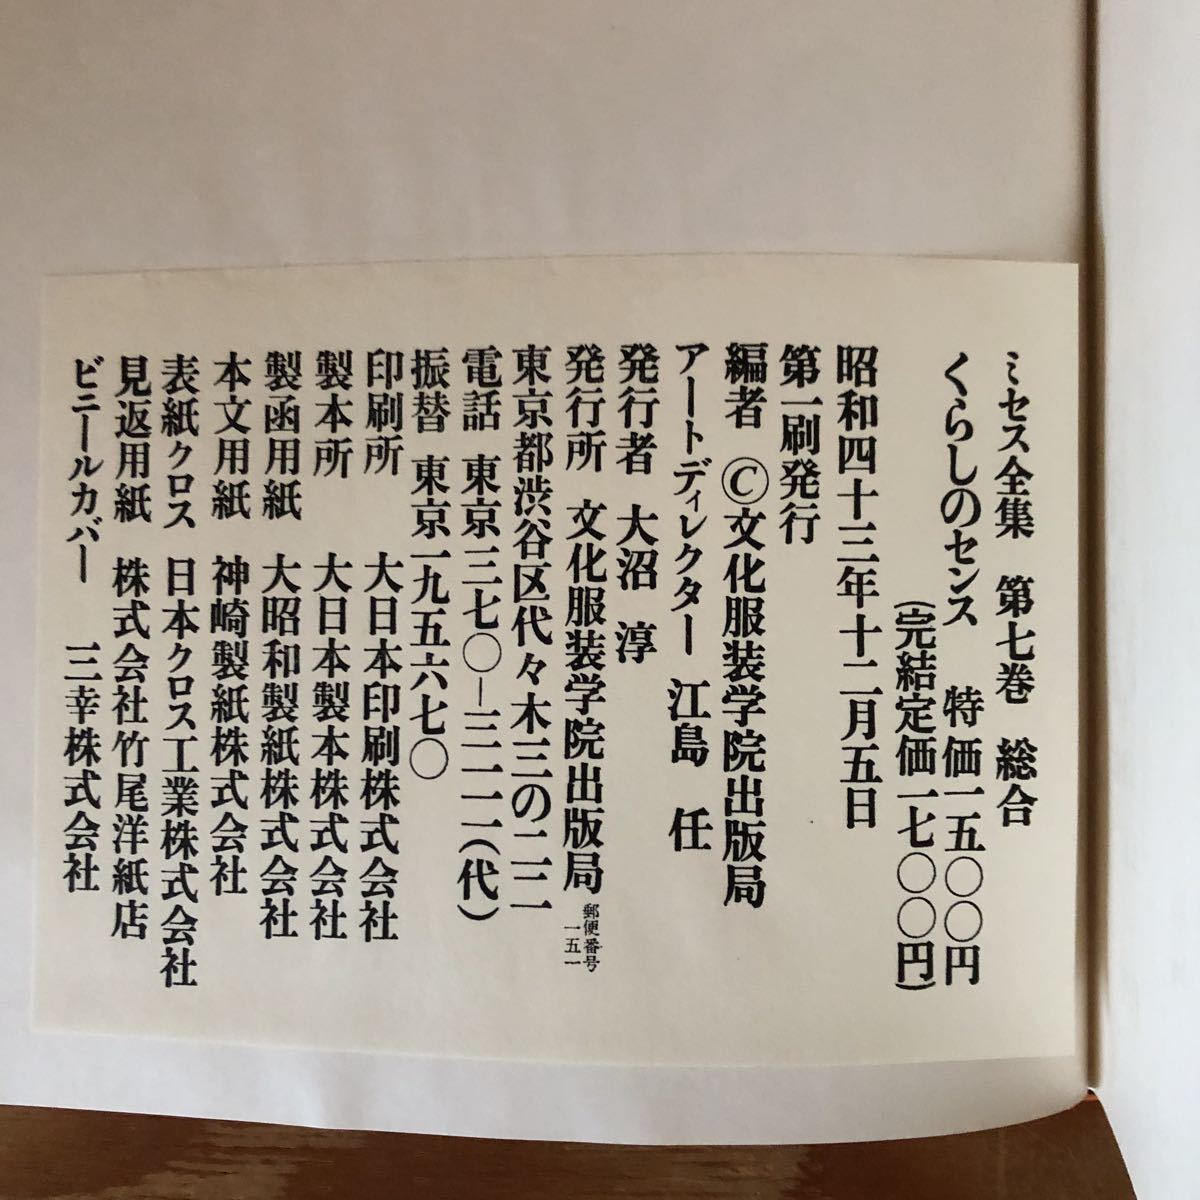 ミセス全集　第七巻　総合
くらしのセンス　特価一五〇〇円
(完結定価一七〇〇円)
昭和四十三年十二月五日
第一刷発行
編者　©文化服装学院出版局
アートディレクター　江島　任
発行者　大沼　淳
発行所　文化服装学院出版局　郵便番号一五一
東京都渋谷区代々木三の二二
電話　東京三七〇―三一一一(代)
振替　東京一九五六七〇
印刷所　大日本印刷株式会社
製本所　大日本製本株式会社
製函用紙　大昭和製紙株式会社
本文用紙　神崎製紙株式会社
表紙クロス　日本クロス工業株式会社
見返用紙　株式会社竹尾洋紙店
ビニールカバー　三幸株式会社